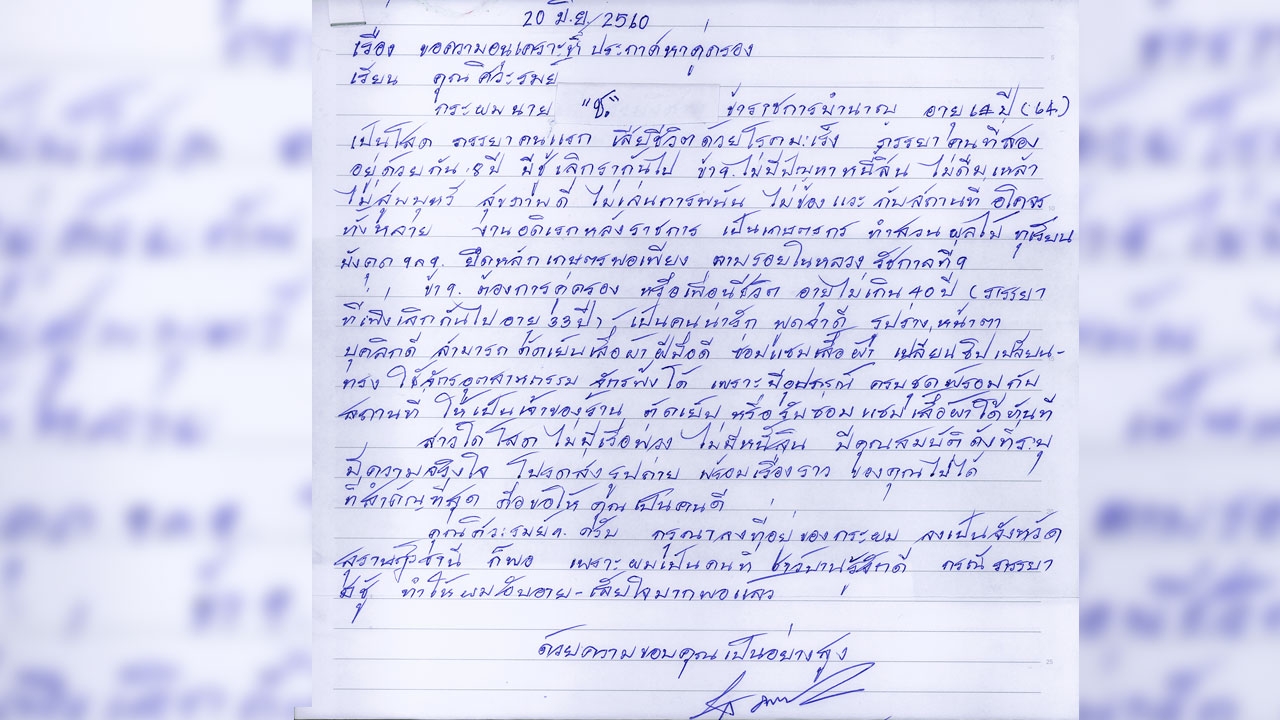 20 มิ.ย./2560
เรื่อง ขอความอนุเคราะห์ ประกาศหาคู่ครอง
เรียน คุณศิวะรมย์
กระผม นาย "ช." ข้าราชการบำนาญ อายุ ๖๔ ปี (64)
เป็นโสด ภรรยาคนแรก เสียชีวิตด้วยโรคมะเร็ง ภรรยาคนที่สอง
อยู่ด้วยกัน 8 ปี มีชู้เลิกรากันไป ข้าฯ ไม่มีปัญหาหนี้สิน ไม่ดื่มเหล้า
ไม่สูบบุหรี่ สุขภาพดี ไม่เล่นการพนัน ไม่ข้องแวะกับสถานที่ อโคจร
ทั้งหลาย งานอดิเรกหลังราชการ เป็นเกษตรกร ทำสวนผลไม้ ทุเรียน
มังคุด ฯลฯ ยึดหลักเกษตรพอเพียง ตามรอยในหลวง รัชกาลที่ 9
ข้าฯ ต้องการคู่ครอง หรือเพื่อนชีวิต อายุไม่เกิน 40 ปี (ภรรยา
ที่เพิ่งเลิกกันไป อายุ 33 ปี) เป็นคนน่ารัก พูดจาดี รูปร่าง หน้าตา
บุคลิกดี สามารถ ตัดเย็บเสื้อผ้าฝีมือดี ซ่อมแซมเสื้อผ้า เปลี่ยนซิป เปลี่ยน-
ทรง ใช้จักรอุตสาหกรรม จักรพ้งได้ เพราะมีอุปกรณ์ ครบชุดพร้อมกับ
สถานที่ ให้เป็นเจ้าของร้าน ตัดเย็บ หรือรับซ่อมแซมเสื้อผ้าได้ทันที
สาวใดโสด ไม่มีเรือพ่วง ไม่มีหนี้สิน มีคุณสมบัติดังที่ระบุ
มีความจริงใจ โปรดส่งรูปถ่าย พร้อมเรื่องราว ของคุณไปได้
ที่สำคัญที่สุด คือขอให้ คุณเป็นคนดี
คุณศิวะรมย์ฯ ครับ กรุณาลงที่อยู่ของกระผม ลงเป็นจังหวัด
สุราษฎร์ธานี ก็พอ เพราะผมเป็นคนที่ ชาวบ้านรู้จักดี กรณีภรรยา
มีชู้ ทำให้ผมอับอาย-เสียใจมากพอแล้ว
ด้วยความขอบคุณเป็นอย่างสูง